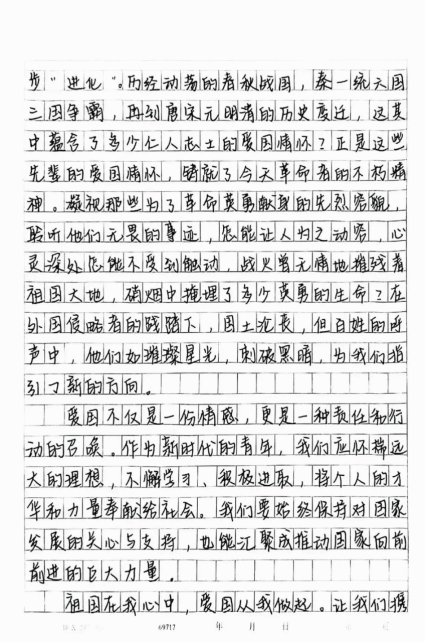 步“进化”。历经动荡的春秋战国,秦一统六国
三国争霸,再到唐宋元明清的历史变迁,这其
中蕴含了多少仁人志士的爱国情怀?正是这些
先辈的爱国情怀,铸就了今天革命者的不朽精
神。凝视那些为了革命英勇献身的先烈容貌,
聆听他们无畏的事迹,怎能让人为之动容,心
灵深处怎能不受到触动,战火曾无情地摧残着
祖国大地,硝烟中掩埋了多少英勇的生命?在
外国侵略者的践踏下,国土沦丧,但百姓的呼
声中,他们如璀璨星光,刺破黑暗,为我们指
引了新的方向。
爱国不仅是一份情感,更是一种责任和行
动的召唤。作为新时代的青年,我们应怀揣远
大的理想,不懈学习、积极进取,将个人的才
华和力量奉献给社会。我们要始终保持对国家
发展的关心与支持,也能汇聚成推动国家向前
前进的巨大力量。
祖国在我心中,爱国从我做起。让我们携
69717 年 月 日